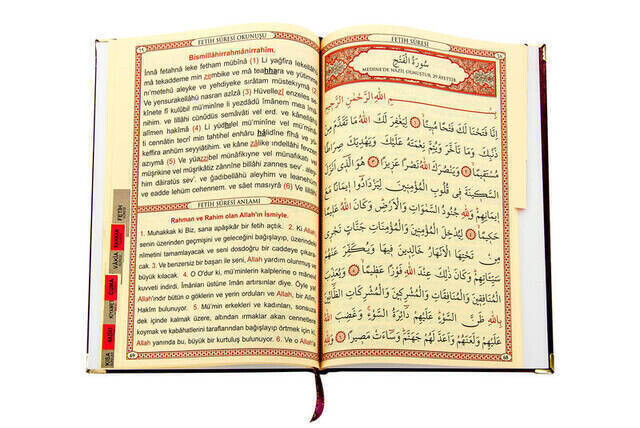 FETİH SÛRESİ OKUNUŞU
Bismillâhirrahmânirrahîm.
İnnâ fetahnâ leke fetham mübînâ (1) Li yağfira lekellâhü
mâ tekaddeme min zembike ve mâ teahhara ve yütimme
ni'metehû aleyke ve yehdiyeke sırâtam müstekîmâ (2)
Ve yensurakellâhü nasran azîzâ (3) Hüvellezî enzeles se
kînete fî kulûbil mü'minîne li yezdâdû îmânem mea îmâ
nihim. ve lillâhi cünûdüs semâvâti vel erd. ve kânellâhü
alîmen hakîmâ (4) Li yüdhilel mü'minîne vel mü'minâ
ti cennâtin tecrî min tahtihel enhâru hâlidîne fîhâ ve yü
keffira anhüm seyyiâtihim. ve kâne zâlike ındellâhi fevzen
azıymâ (5) Ve yüazzibel münâfikıyne vel münâfikâti vel
müşrikîne vel müşrikâtiz zânnîne billâhi zannes sev'. aley
him dâiratüs sev'. ve ğadıbellâhü aleyhim ve leanehüm
ve eadde lehüm cehennem. ve sâet masıyrâ (6) Ve lillâhi
FETİH SÛRESİ ANLAMI
Rahman ve Rahim olan Allah'ın İsmiyle.
1. Muhakkak ki Biz, sana apâşikâr bir fetih açtık. 2. Ki Allah
senin üzerinden geçmişini ve geleceğini bağışlayıp, üzerindeki
nîmetini tamamlayacak ve seni dosdoğru bir caddeye çıkara
cak. 3. Ve benzersiz bir başarı ile seni, Allah yardım olunmuş ve
büyük kılacak. 4. O O'dur ki, mü'minlerin kalplerine o mânevi
kuvveti indirdi. İmânları üstüne îmân artırsınlar diye. Öyle ya
Allah'ındır bütün o göklerin ve yerin orduları ve Allah, bir Alîm
Hakîm bulunuyor. 5. Mü'min erkekleri ve kadınları, sonsuza
dek içinde kalmak üzere, altından ırmaklar akan cennetlere
koymak ve kabahatlerini taraflarından bağışlayıp örtmek için ki,
Allah yanında bu, büyük bir kurtuluş bulunuyor. 6. Ve o Allah'a
69
FETİH
VÂKIA
CUMA
KISA
FETİH SÛRESİ
سُورَةُ الْفَتْحِ
MEDİNE'DE NÂZİL OLMUŞTUR, 29 ÂYETTİR
بِسْمِ اللّٰهِ الرَّحْمٰنِ الرَّحِيمِ
اِنَّا فَتَحْنَا لَكَ فَتْحًا مُبِينًا ﴿١﴾ لِيَغْفِرَ لَكَ اللّٰهُ مَا تَقَدَّمَ مِنْ
ذَنْبِكَ وَمَا تَاَخَّرَ وَيُتِمَّ نِعْمَتَهُ عَلَيْكَ وَيَهْدِيَكَ صِرَاطًا
مُسْتَقِيمًا ﴿٢﴾ وَيَنْصُرَكَ اللّٰهُ نَصْرًا عَزِيزًا ﴿٣﴾ هُوَ الَّذِى اَنْزَلَ
السَّكِينَةَ فِى قُلُوبِ الْمُؤْمِنِينَ لِيَزْدَادُوا اِيمَانًا مَعَ
اِيمَانِهِمْ وَلِلّٰهِ جُنُودُ السَّمٰوَاتِ وَالْاَرْضِ وَكَانَ اللّٰهُ عَلِيمًا
حَكِيمًا ﴿٤﴾ لِيُدْخِلَ الْمُؤْمِنِينَ وَالْمُؤْمِنَاتِ جَنَّاتٍ تَجْرِى
مِنْ تَحْتِهَا الْاَنْهَارُ خَالِدِينَ فِيهَا وَيُكَفِّرَ عَنْهُمْ
سَيِّاٰتِهِمْ وَكَانَ ذٰلِكَ عِنْدَ اللّٰهِ فَوْزًا عَظِيمًا ﴿٥﴾ وَيُعَذِّبَ
الْمُنَافِقِينَ وَالْمُنَافِقَاتِ وَالْمُشْرِكِينَ وَالْمُشْرِكَاتِ الظَّانِّينَ
بِاللّٰهِ ظَنَّ السَّوْءِ عَلَيْهِمْ دَائِرَةُ السَّوْءِ وَغَضِبَ اللّٰهُ
عَلَيْهِمْ وَلَعَنَهُمْ وَاَعَدَّ لَهُمْ جَهَنَّمَ وَسَاءَتْ مَصِيرًا ﴿٦﴾ وَلِلّٰهِ
68